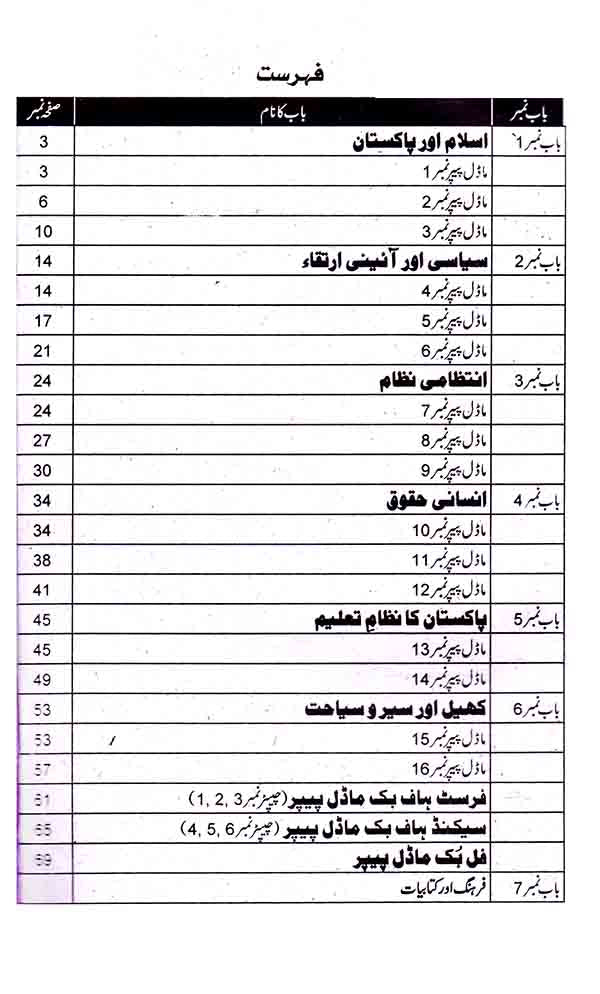 فہرست
باب نمبر باب کا نام صفحہ نمبر
باب نمبر 1 اسلام اور پاکستان 3
ماڈل پیپر نمبر 1 3
ماڈل پیپر نمبر 2 6
ماڈل پیپر نمبر 3 10
باب نمبر 2 سیاسی اور آئینی ارتقاء 14
ماڈل پیپر نمبر 4 14
ماڈل پیپر نمبر 5 17
ماڈل پیپر نمبر 6 21
باب نمبر 3 انتظامی نظام 24
ماڈل پیپر نمبر 7 24
ماڈل پیپر نمبر 8 27
ماڈل پیپر نمبر 9 30
باب نمبر 4 انسانی حقوق 34
ماڈل پیپر نمبر 10 34
ماڈل پیپر نمبر 11 38
ماڈل پیپر نمبر 12 41
باب نمبر 5 پاکستان کا نظامِ تعلیم 45
ماڈل پیپر نمبر 13 45
ماڈل پیپر نمبر 14 49
باب نمبر 6 کھیل اور سیر و سیاحت 53
ماڈل پیپر نمبر 15 53
ماڈل پیپر نمبر 16 57
فرسٹ ہاف بک ماڈل پیپر (چیپٹر نمبر 1, 2, 3) 61
سیکنڈ ہاف بک ماڈل پیپر (چیپٹر نمبر 4, 5, 6) 65
فل بُک ماڈل پیپر 69
باب نمبر 7 فرہنگ اور کتابیات